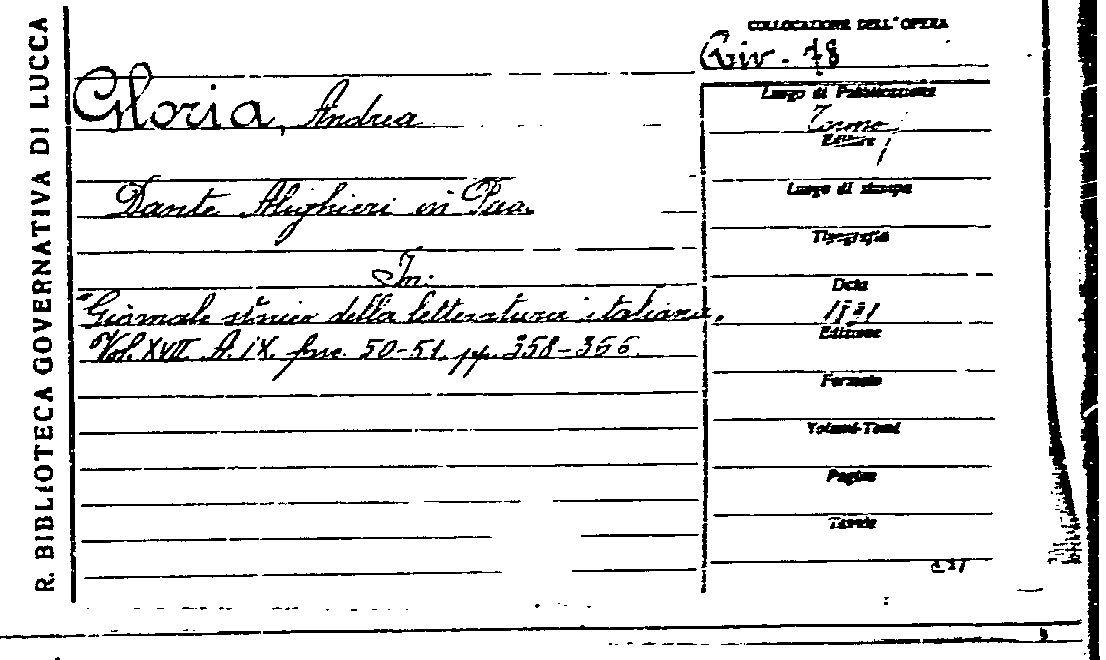 R. BIBLIOTECA GOVERNATIVA DI LUCCA
COLLOCAZIONE DELL'OPERA
Riv. - 78
Gloria, Andrea
Dante Alighieri in
In:
"Giornale storico della letteratura italiana.
Vol. XVII A. IX. fasc. 50-51. pp. 358-366.
Luogo di Pubblicazione
Torino
Editore
Luogo di stampa
Tipografia
Data
1891
Edizione
Formato
Volumi-Tomi
Pagine
Tavole